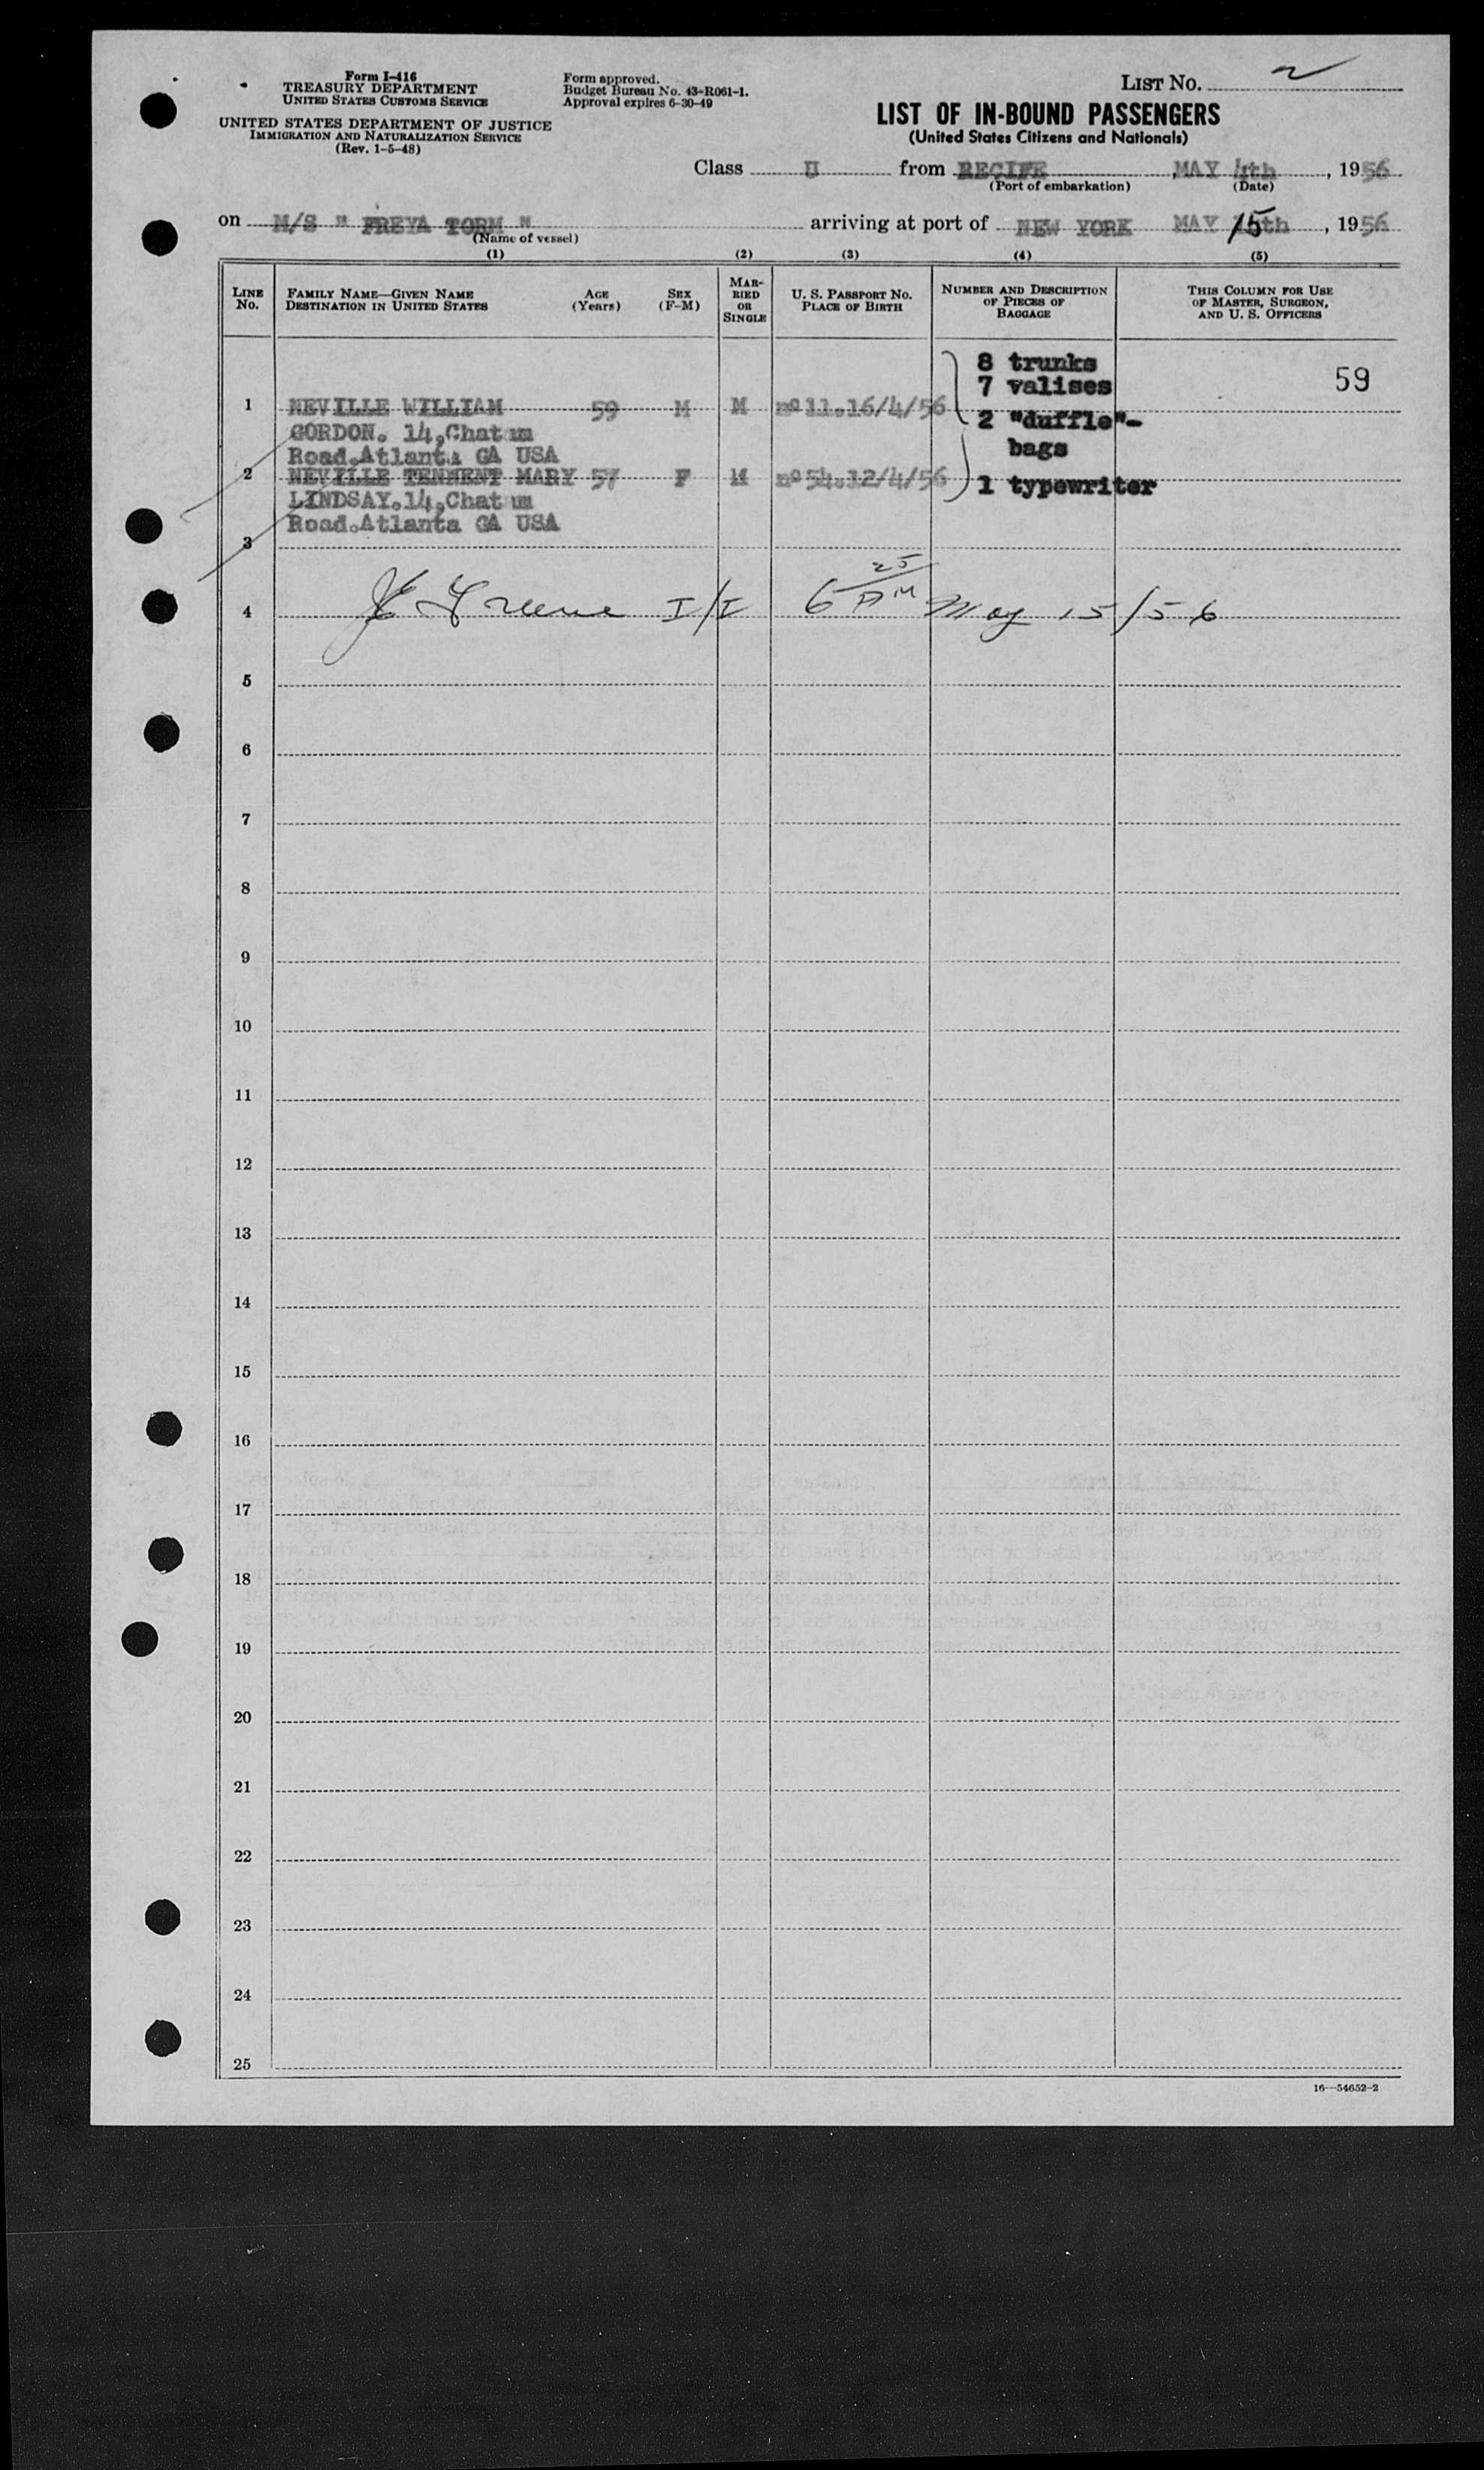 Form I-416
TREASURY DEPARTMENT
UNITED STATES CUSTOMS SERVICE
UNITED STATES DEPARTMENT OF JUSTICE
IMMIGRATION AND NATURALIZATION SERVICE
(Rev. 1-5-48)
Form approved.
Budget Bureau No. 43-R061-1.
Approval expires 6-30-49
LIST NO. 2
LIST OF IN-BOUND PASSENGERS
(United States Citizens and Nationals)
Class U from RECIFE, MAY 4th, 1956
(Port of embarkation) (Date)
on M/S " FREYA TORM " arriving at port of NEW YORK MAY 15th, 1956
(Name of vessel)
(1) (2) (3) (4) (5)
LINE No.
FAMILY NAME—GIVEN NAME
DESTINATION IN UNITED STATES
AGE (Years)
SEX (F-M)
MARRIED OR SINGLE
U. S. PASSPORT NO.
PLACE OF BIRTH
NUMBER AND DESCRIPTION OF PIECES OF BAGGAGE
THIS COLUMN FOR USE OF MASTER, SURGEON, AND U. S. OFFICERS
8 trunks
7 valises
59
1 NEVILLE WILLIAM 59 M M nº 11.16/4/56
2 "duffle"-
GORDON. 14,Chatam
bags
Road.Atlanta GA USA
2 NEVILLE TENNENT MARY 57 F M nº 54.12/4/56
1 typewriter
LINDSAY.14,Chatam
Road.Atlanta GA USA
3
4 Greene I/I 6 25 PM May 15/56
5
6
7
8
9
10
11
12
13
14
15
16
17
18
19
20
21
22
23
24
25
16—54652-2